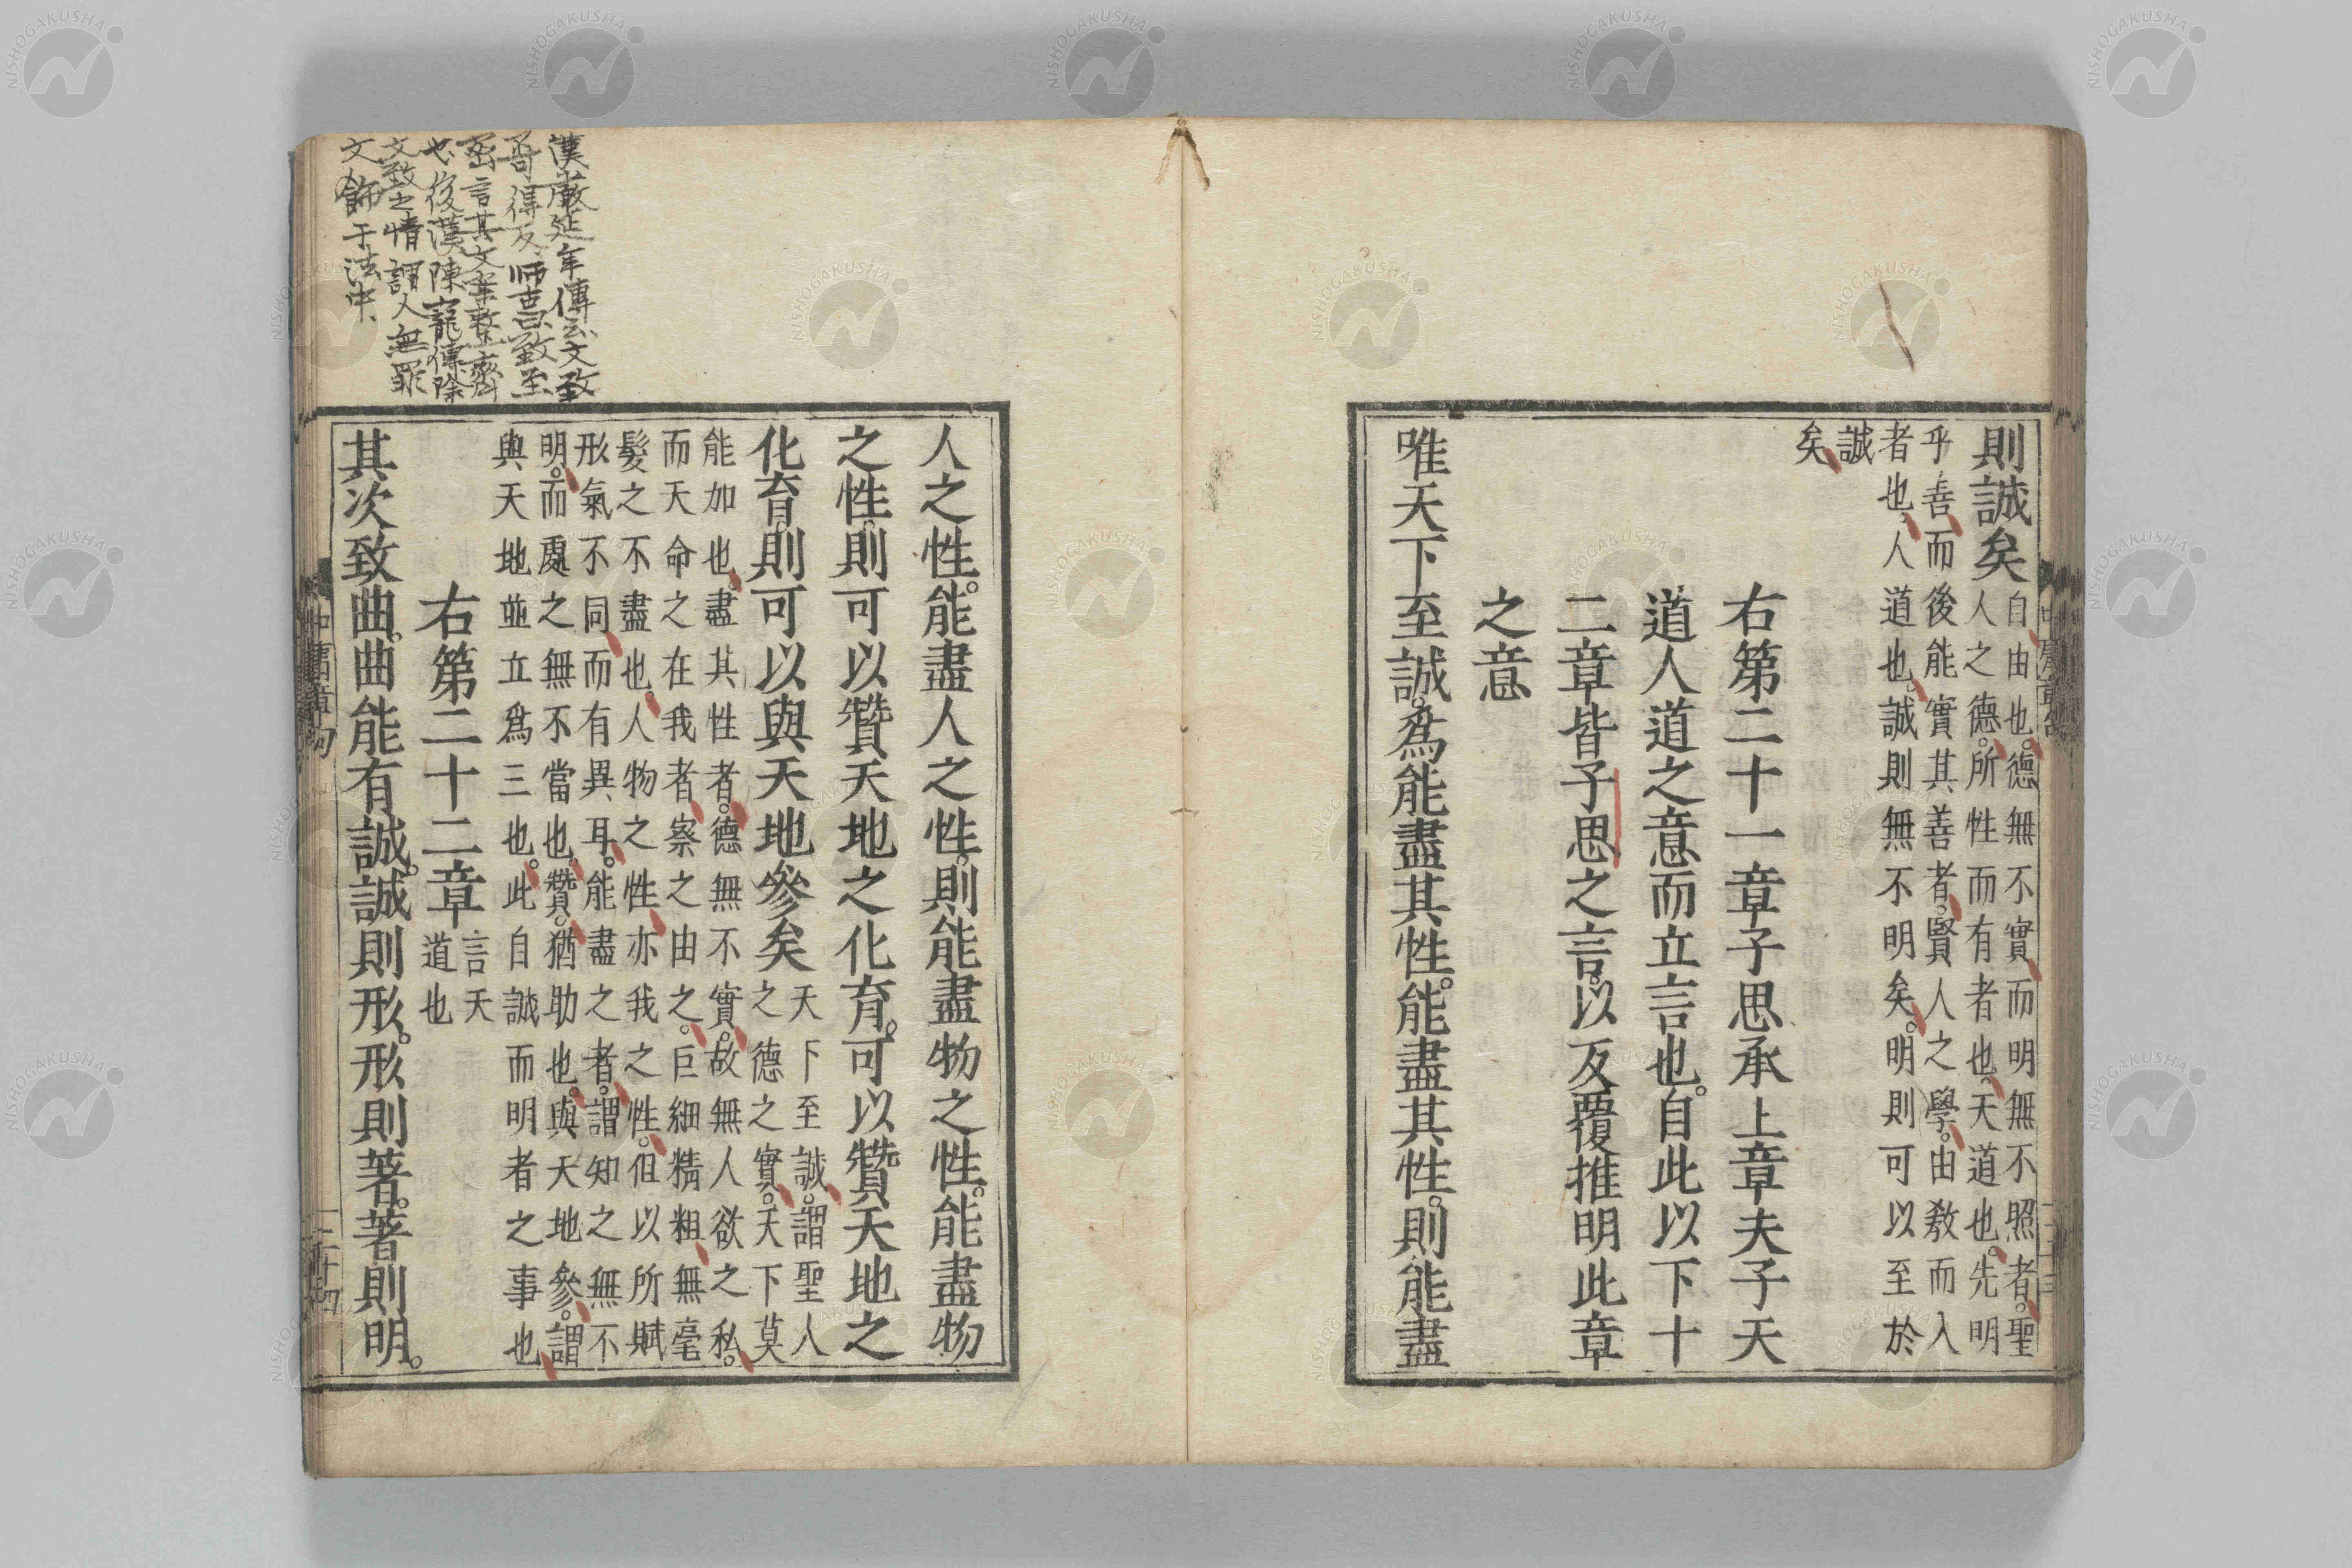 中庸章句
二十三
則誠矣
自由也。德無不實而明無不照者。聖
人之德。所性而有者也。天道也。先明
乎善而後能實其善者。賢人之學。由敎而入
者也、人道也。誠則無不明矣。明則可以至於
誠
矣
右第二十一章子思承上章夫子天
道人道之意而立言也。自此以下十
二章皆子思之言。以反覆推明此章
之意
唯天下至誠。爲能盡其性。能盡其性。則能盡
漢嚴延年傳云文致
不可得反、師古曰致至
密言其文案整齊
也、後漢陳寵傳除
文致之情謂人無罪
文飾于法中、
人之性。能盡人之性。則能盡物之性。能盡物
之性。則可以贊天地之化育。可以贊天地之
化育。則可以與天地參矣
天下至誠。謂聖人
之德之實。天下莫
能加也。盡其性者。德無不實。故無人欲之私。
而天命之在我者。察之由之。巨細精粗。無毫
髮之不盡也。人物之性。亦我之性。但以所賦
形氣不同。而有異耳。能盡之者。謂知之無不
明。而處之無不當也。贊。猶助也。與天地參。謂
與天地並立爲三也。此自誠而明者之事也
右第二十二章
言天
道也
其次致曲。曲能有誠。誠則形。形則著。著則明。
中庸章句
二十四
NISHOGAKUSHA